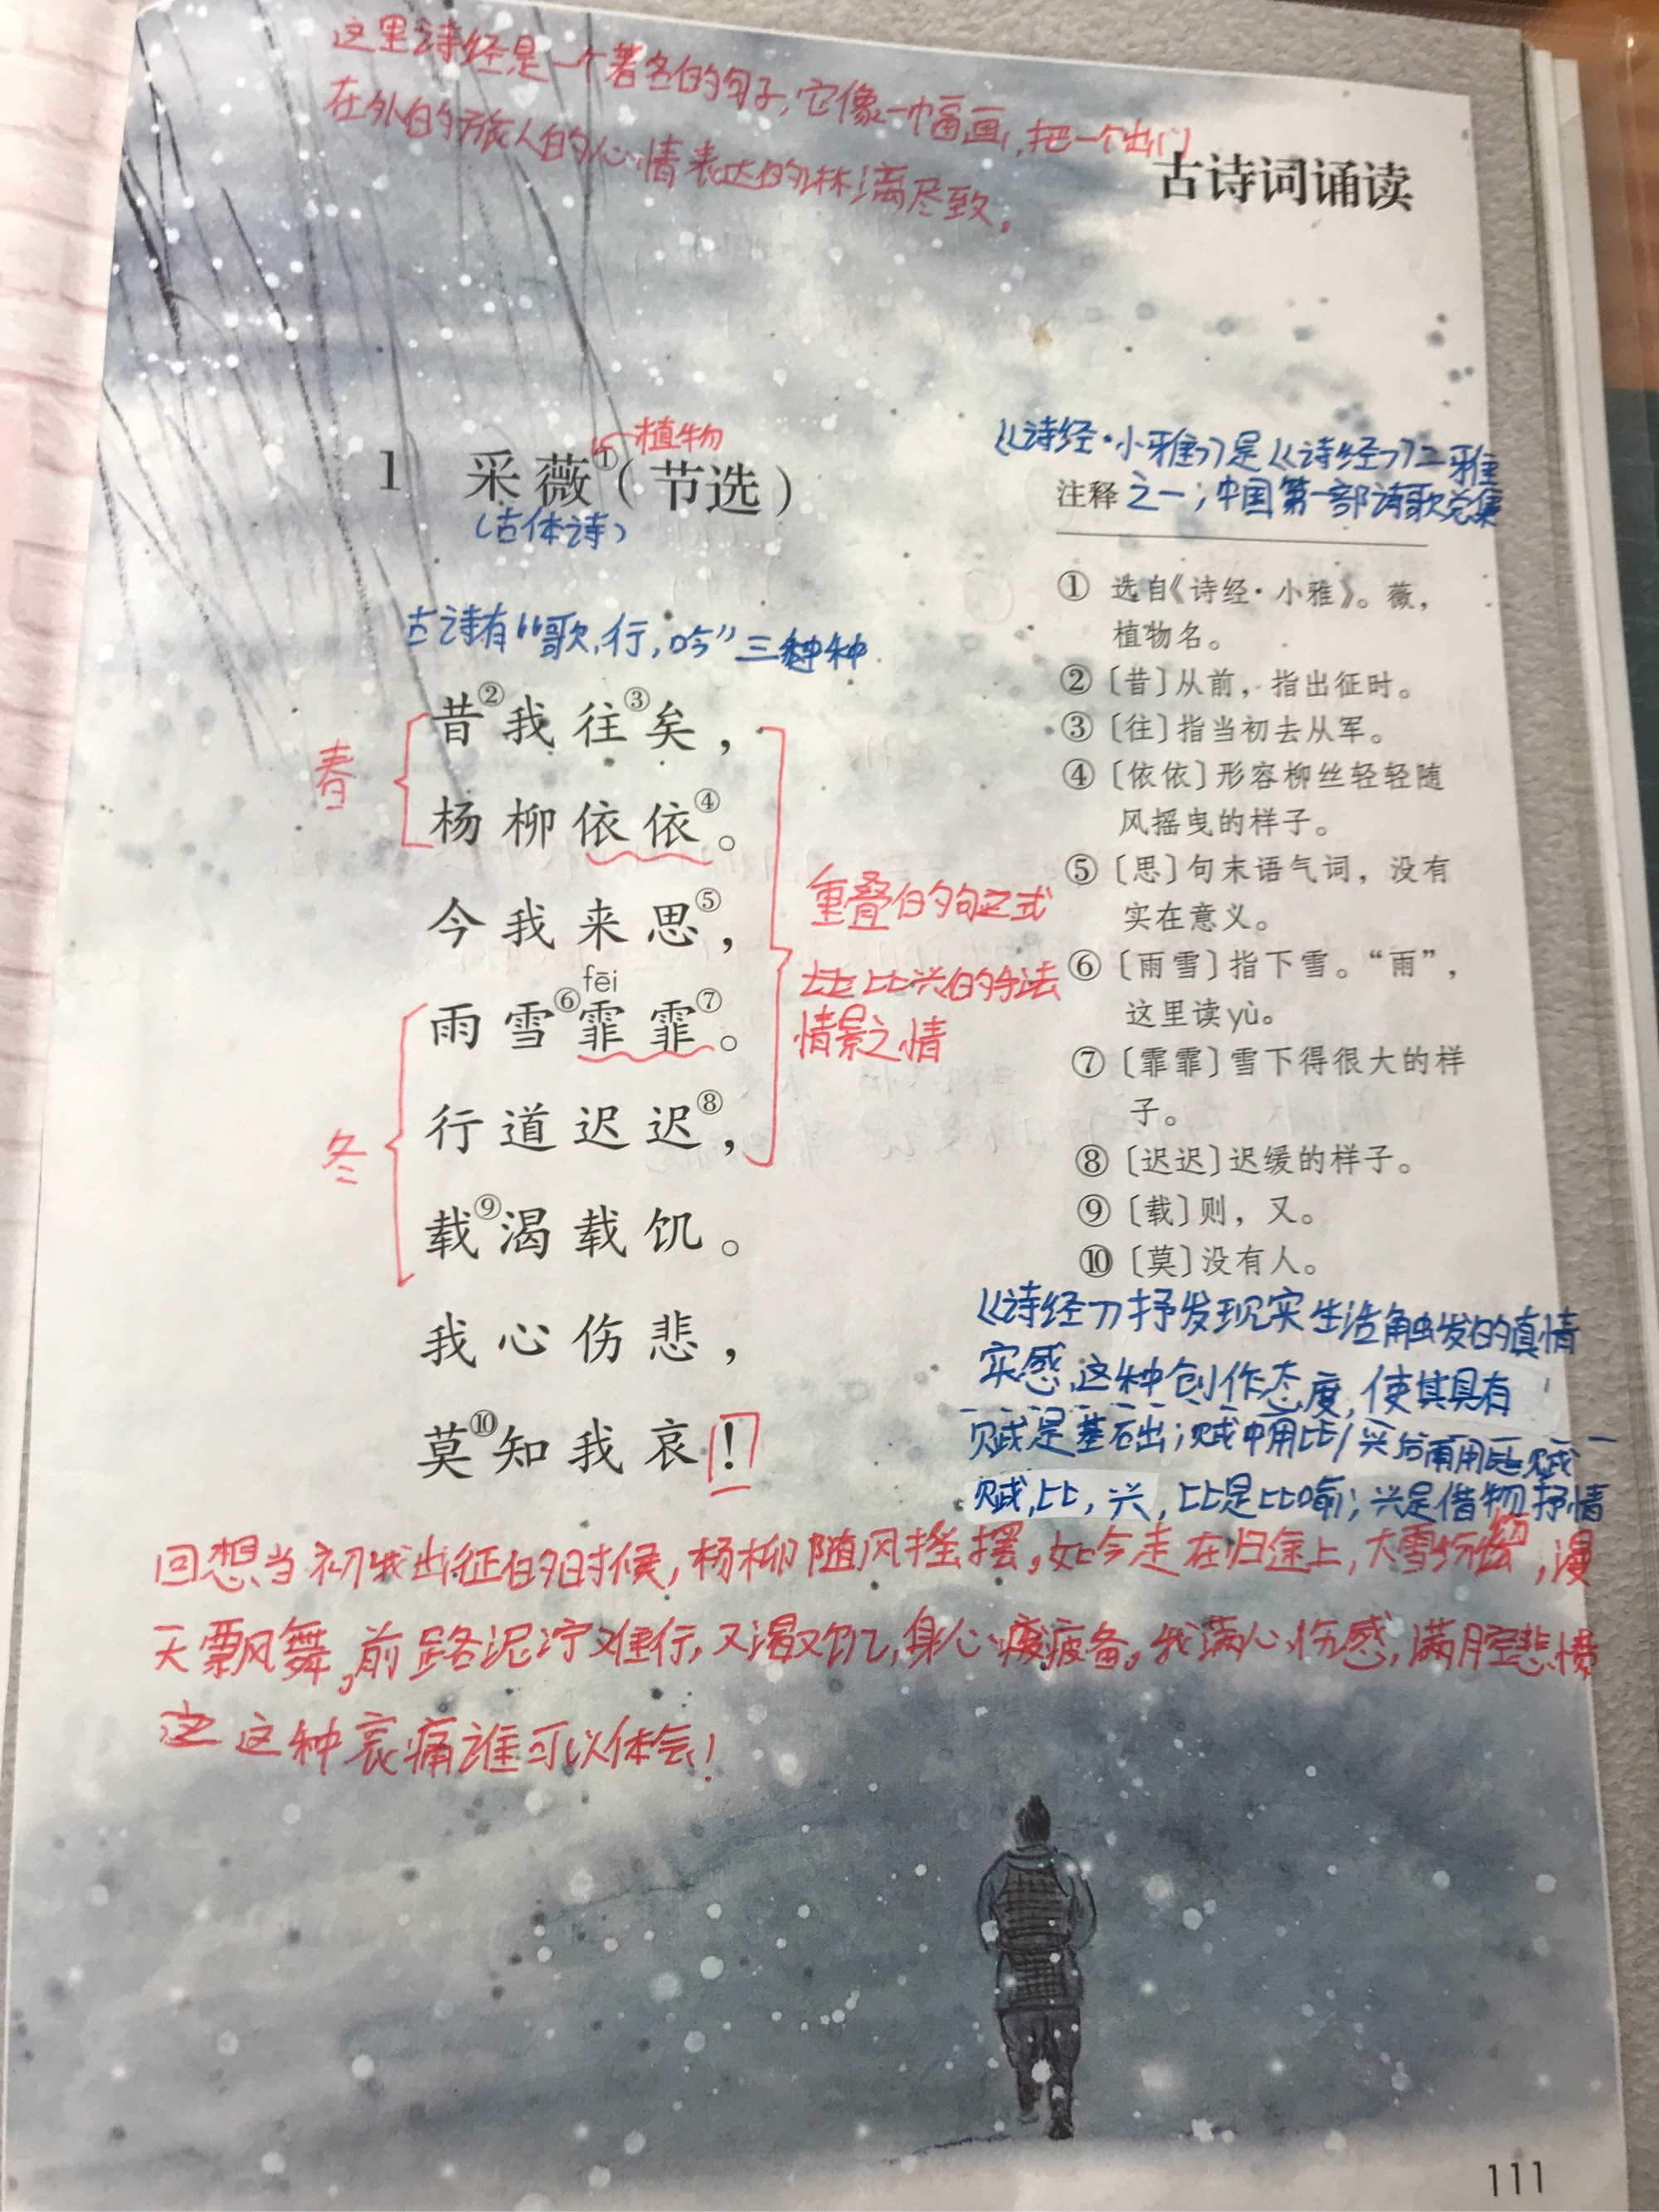 这里诗经是一个著名的句子,它像一幅画,把一个出门
在外的旅人的心情表达的淋漓尽致。
古诗词诵读
植物
1 采薇①(节选)
(古体诗)
古诗有“歌,行,吟”三种
春
昔②我往③矣,
杨柳依依④。
今我来思⑤,
fēi
雨雪⑥霏霏⑦。
冬
行道迟迟⑧,
载⑨渴载饥。
我心伤悲,
莫⑩知我哀!
重叠的句式
比兴的手法
情景之情
《诗经·小雅》是《诗经》二雅
注释 之一;中国第一部诗歌总集
① 选自《诗经·小雅》。薇,
植物名。
②〔昔〕从前,指出征时。
③〔往〕指当初去从军。
④〔依依〕形容柳丝轻轻随
风摇曳的样子。
⑤〔思〕句末语气词,没有
实在意义。
⑥〔雨雪〕指下雪。“雨”,
这里读yù。
⑦〔霏霏〕雪下得很大的样
子。
⑧〔迟迟〕迟缓的样子。
⑨〔载〕则,又。
⑩〔莫〕没有人。
《诗经》抒发现实生活触发的真情
实感,这种创作态度,使其具有
赋是基础;赋中用比,
赋,比,兴,比是比喻;兴是借物抒情
回想当初我出征的时候,杨柳随风摇摆。如今走在归途上,大雪纷纷,漫
天飘舞。前路泥泞难行,又渴又饥,身心疲备。我满心伤感,满腔悲愤
这种哀痛谁可以体会!
111